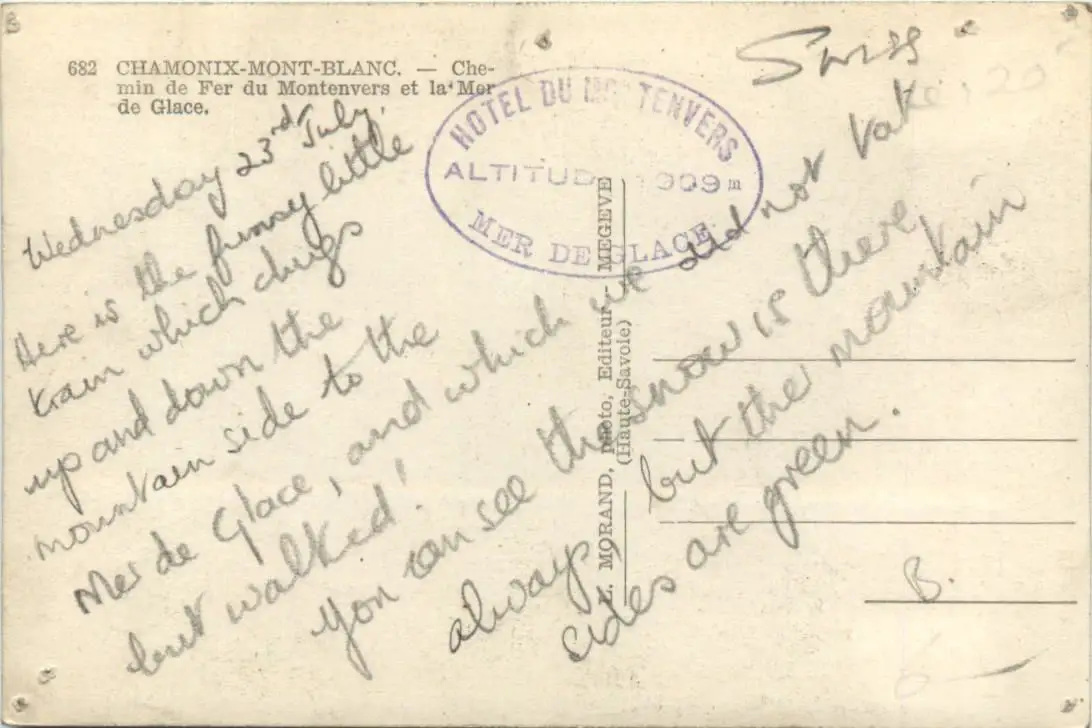 682 CHAMONIX-MONT-BLANC. — Che-
min de Fer du Montenvers et la Mer
de Glace.
HOTEL DU MONTENVERS
ALTITUDE 1909 m
MER DE GLACE
Swiss
Wednesday 23rd July.
Here is the funny little
train which chugs
up and down the
mountain side to the
Mer de Glace, and which we did not take
but walked!
You can see the snow is there
always, but the mountain
sides are green.
MORAND, Photo, Editeur - MEGEVE
(Haute-Savoie)
B.